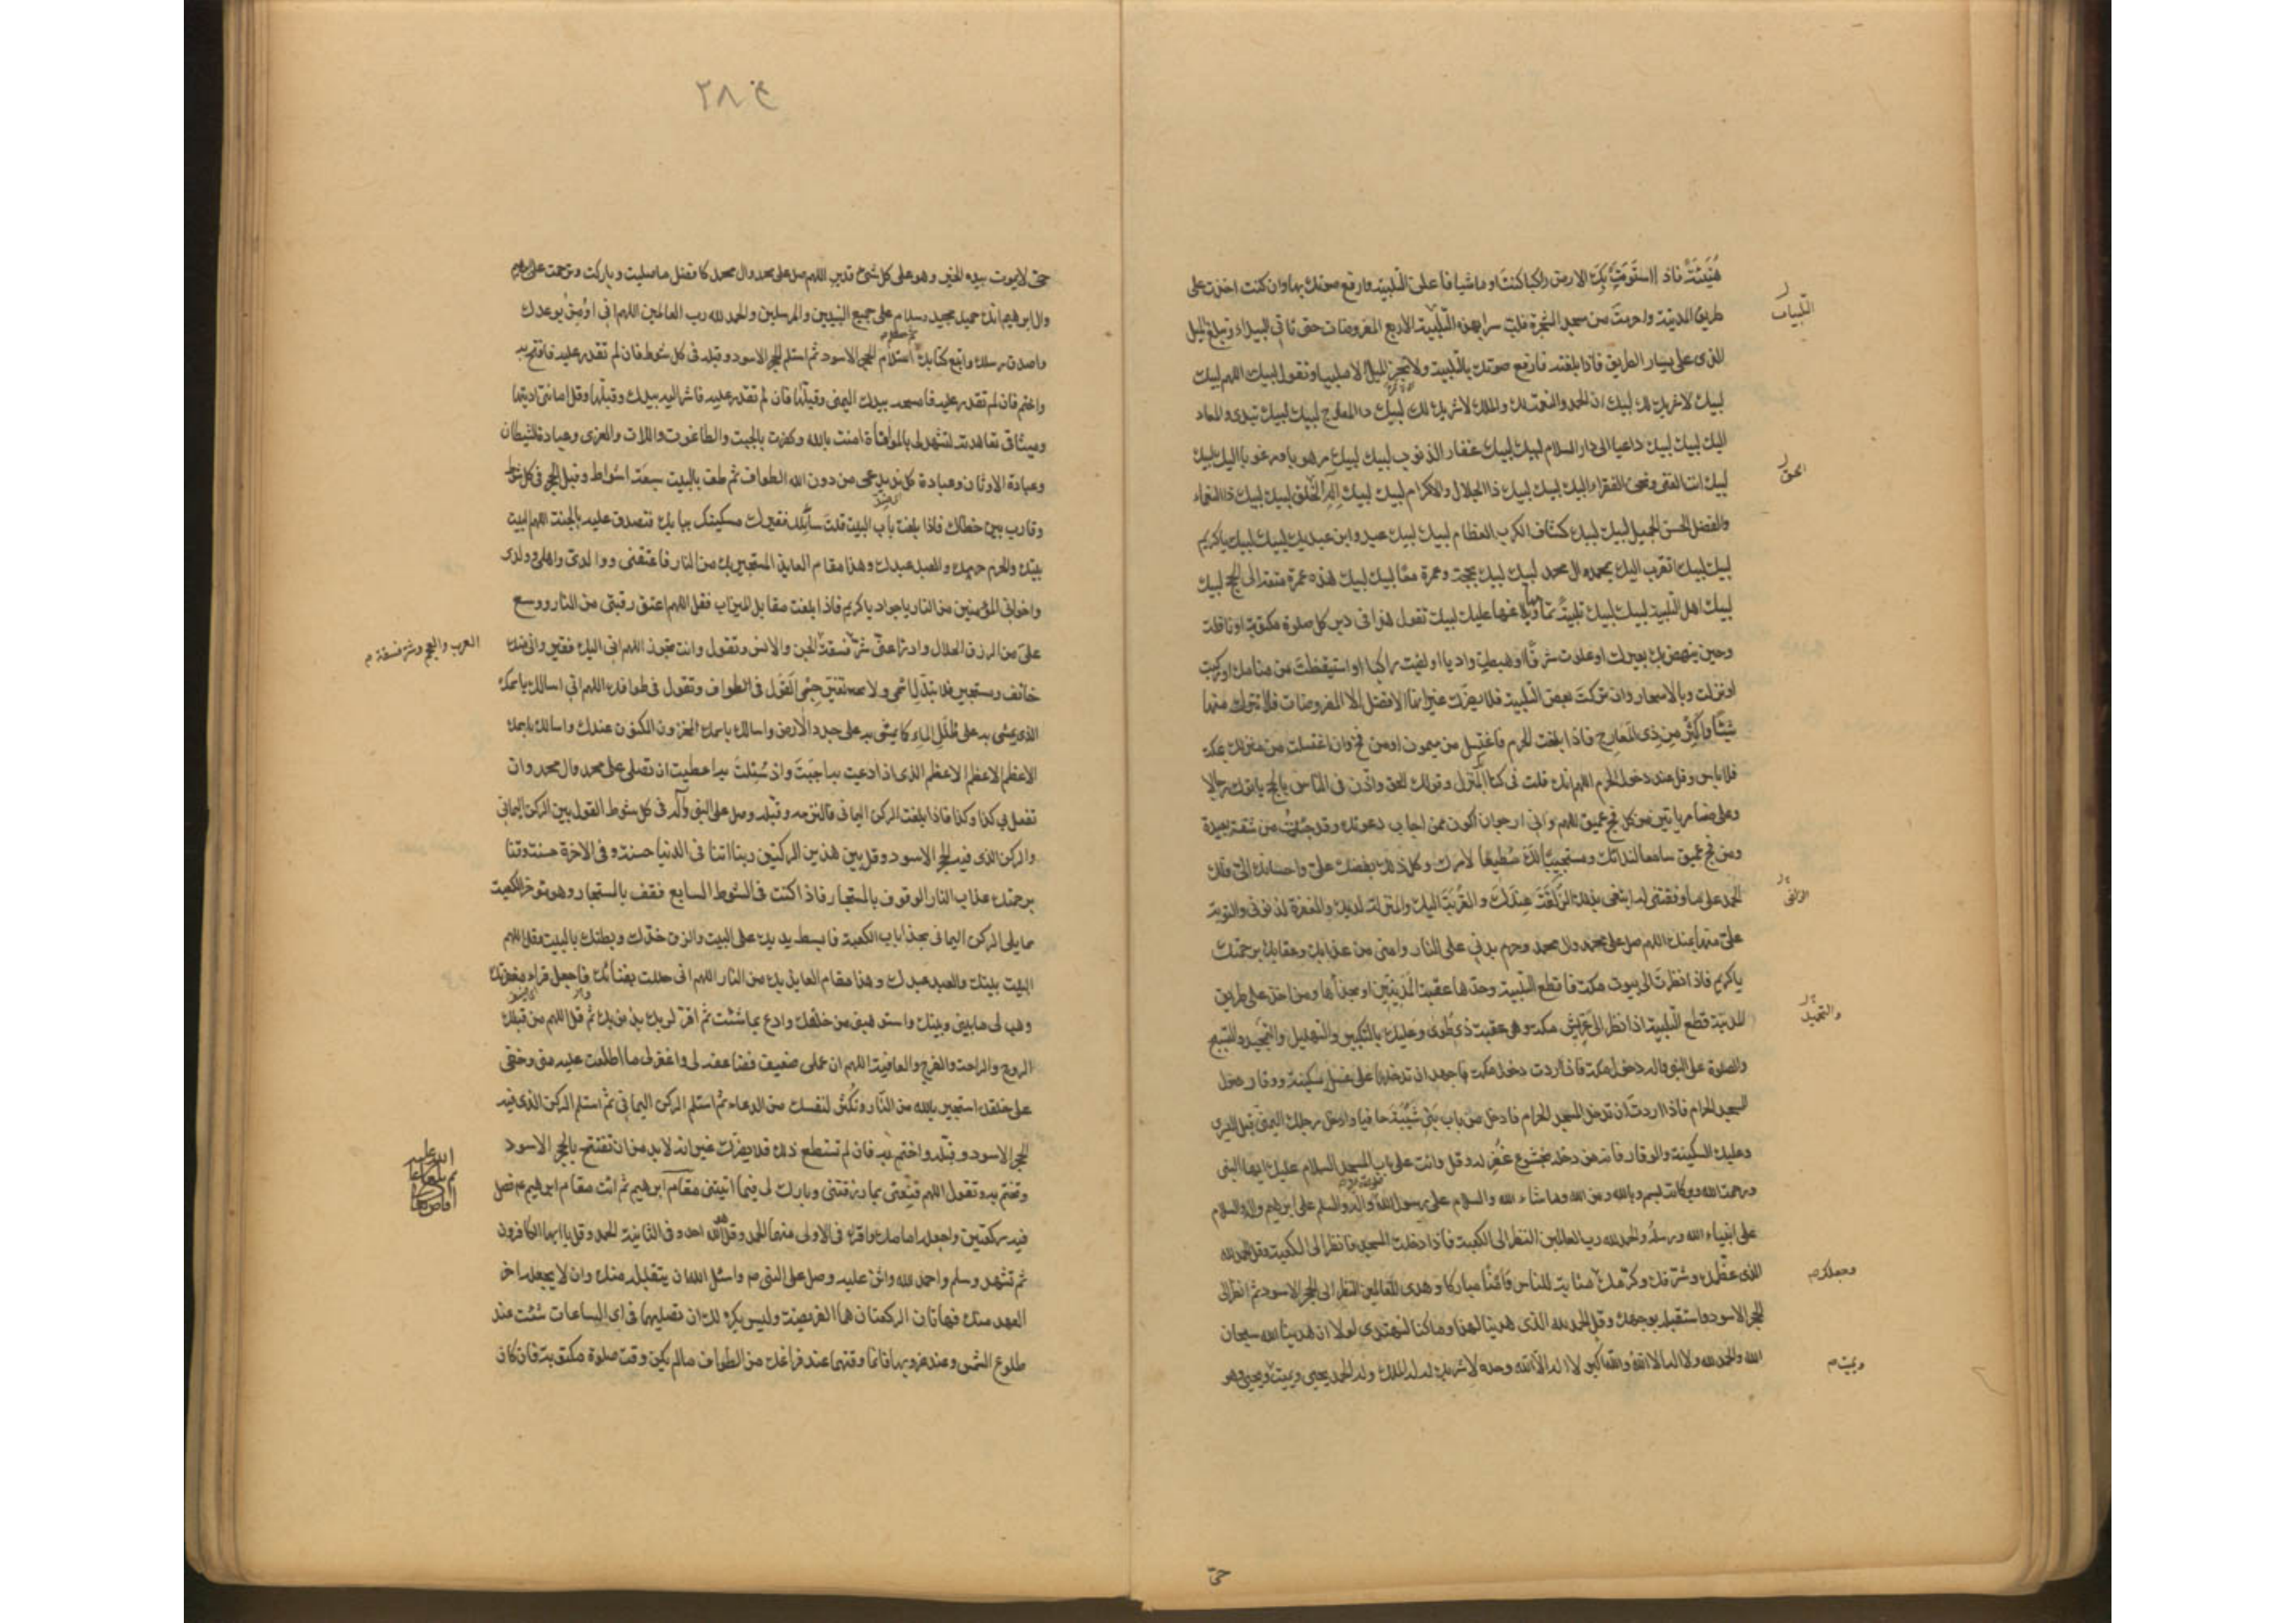 هُنَيْئَةً فاذا استَوَتْ بِكَ الارض راكبا كنت او ماشيا فاعلن التلبية وارفع صوتك بها وان كنت اخذت على
طريق المدينة واحرمت من مسجد الشجرة فلب سرا بهذه التلبية الاربع المفروضات حتى تاتى البيداء وتبلغ الميل
الذى على يسار الطريق فاذا بلغته فارفع صوتك بالتلبية ولا تجز الميل الا ملبيا وتقول لبيك اللهم لبيك
لبيك لا شريك لك لبيك ان الحمد والنعمة لك والملك لا شريك لك لبيك ذا المعارج لبيك لبيك تبدئ والمعاد
اليك لبيك لبيك داعيا الى دار السلام لبيك لبيك غفار الذنوب لبيك لبيك مرهوبا ومرغوبا اليك لبيك
لبيك انت الغنى ونحن الفقراء اليك لبيك لبيك ذا الجلال والاكرام لبيك لبيك اله الخلق لبيك لبيك ذا النعماء
والفضل الحسن الجميل لبيك لبيك كشاف الكرب العظام لبيك لبيك عبدك وابن عبديك لبيك لبيك يا كريم
لبيك لبيك اتقرب اليك بمحمد وال محمد لبيك لبيك بحجة وعمرة معا لبيك لبيك هذه عمرة متعة الى الحج لبيك
لبيك اهل التلبية لبيك لبيك تلبية تمامها وبلاغها عليك لبيك تقول هذا فى دبر كل صلوة مكتوبة او نافلة
وحين ينهض بك بعيرك او علوت شرفا او هبطت واديا او لقيت راكبا او استيقظت من منامك او ركبت
او نزلت وبالاسحار وان تركت بعض التلبية فلا يضرك غير انها الافضل الا المفروضات فلا تترك منها
شيئا واكثر من ذى المعارج فاذا بلغت الحرم فاغتسل من بئر ميمون او من فخ وان اغتسلت من منزلك بمكة
فلا باس وقل عند دخول الحرم اللهم انك قلت فى كتابك المنزل وقولك الحق واذن فى الناس بالحج ياتوك رجالا
وعلى كل ضامر ياتين من كل فج عميق اللهم وانى ارجو ان اكون ممن اجاب دعوتك وقد جئت من شقة بعيدة
ومن فج عميق سامعا لندائك ومستجيبا لك مطيعا لامرك وكل ذلك بفضلك على واحسانك الى فلك
الحمد على ما وفقتنى له ابتغى بذلك الزلفة عندك والقربة اليك والمنزلة لديك والمغفرة لذنوبى والتوبة
على منها بمنك اللهم صل على محمد وال محمد وحرم بدنى على النار وامنى من عذابك وعقابك برحمتك
يا كريم فاذا نظرت الى بيوت مكة فاقطع التلبية وحدها عقبة المدنيين او بحذائها ومن اخذ على طريق
المدينة قطع التلبية اذا نظر الى عريش مكة وهى عقبة ذى طوى وعليك بالتكبير والتهليل والتمجيد والتسبيح
والصلوة على النبى واله دخول مكة فاذا اردت دخول مكة فاجهد ان تدخلها على غسل بسكينة ووقار دخول
المسجد الحرام فاذا اردت ان تدخل المسجد الحرام فادخل من باب بنى شيبة حافيا وادخل رجلك اليمنى قبل اليسرى
وعليك السكينة والوقار فانه من دخله بخشوع غفر له وقل وانت على باب المسجد السلام عليك ايها النبى
ورحمة الله وبركاته بسم الله وبالله ومن الله وما شاء الله والسلام على رسول الله واله والسلام على ابرهيم واله والسلام
على انبياء الله ورسله والحمد لله رب العالمين النظر الى الكعبة فاذا دخلت المسجد فانظر الى الكعبة وقل الحمد لله
الذى عظمك وشرفك وكرمك مثابة للناس وامنا مباركا وهدى للعالمين النظر الى الحجر الاسود ثم انظر الى
الحجر الاسود واستقبله بوجهك وقل الحمد لله الذى هدينا لهذا وما كنا لنهتدى لولا ان هدينا الله سبحان
الله والحمد لله ولا اله الا الله والله اكبر لا اله الا الله وحده لا شريك له له الملك وله الحمد يحيى ويميت ويحيى وهو
التلبيات
الحق
الزلفى
والتحميد
وجعلك م
ويميت م
حى
ع ٢٨
حى لا يموت بيده الخير وهو على كل شئ قدير اللهم صل على محمد وال محمد كافضل ما صليت وباركت وترحمت على ابرهيم
وال ابرهيم انك حميد مجيد وسلام على جميع النبيين والمرسلين والحمد لله رب العالمين اللهم انى اؤمن بوعدك
واصدق رسلك واتبع كتابك استلام الحجر الاسود ثم استلم الحجر الاسود وقبله فى كل شوط فان لم تقدر عليه فافتح به
واختم فان لم تقدر عليه فامسحه بيدك اليمنى وقبلها فان لم تقدر عليه فاشر اليه بيدك وقبلها وقل امانتى اديتها
وميثاقى تعاهدته لتشهد لى بالموافاة امنت بالله وكفرت بالجبت والطاغوت واللات والعزى وعبادة الشيطان
وعبادة الاوثان وعبادة كل ند يدعى من دون الله الطواف ثم طف بالبيت سبعة اشواط وقبل الحجر فى كل شوط
وقارب بين خطاك فاذا بلغت باب البيت قلت سائلك فقيرك مسكينك ببابك فتصدق عليه بالجنة اللهم البيت
بيتك والحرم حرمك والعبد عبدك وهذا مقام العايذ المستجير بك من النار فاعتقنى ووالدى واهلى وولدى
واخوانى المؤمنين من النار يا جواد يا كريم فاذا بلغت مقابل الميزاب فقل اللهم اعتق رقبتى من النار ووسع
على من الرزق الحلال وادرا عنى شر فسقة الجن والانس وتقول وانت تجوز اللهم انى اليك فقير وانى منك
خائف ومستجير فلا تبدل اسمى ولا تغير جسمى القول فى الطواف وتقول فى طوافك اللهم انى اسالك باسمك
الذى يمشى به على طلل الماء كما يمشى به على جدد الارض واسالك باسمك المخزون المكنون عندك واسالك باسمك
الاعظم الاعظم الاعظم الذى اذا دعيت به اجبت واذا سئلت به اعطيت ان تصلى على محمد وال محمد وان
تفعل بى كذا وكذا فاذا بلغت الركن اليمانى فالتزمه وقبله وصل على النبى واله فى كل شوط القول بين الركن اليمانى
والركن الذى فيه الحجر الاسود وقل بين هذين الركنين ربنا اتنا فى الدنيا حسنة وفى الاخرة حسنة وقنا
برحمتك عذاب النار الوقوف بالمستجار فاذا كنت فى الشوط السابع فقف بالمستجار وهو مؤخر الكعبة
مما يلى الركن اليمانى بحذا باب الكعبة فابسط يديك على البيت والزق خدك وبطنك بالبيت وقل اللهم
البيت بيتك والعبد عبدك وهذا مقام العايذ بك من النار اللهم انى حللت بفنائك فاجعل قراى مغفرتك
وهب لى ما بينى وبينك واستوهبنى من خلقك وادع بما شئت ثم اقر لربك بذنوبك ثم قل اللهم من قبلك
الروح والراحة والفرج والعافية اللهم ان عملى ضعيف فضاعفه لى واغفر لى ما اطلعت عليه منى وخفى
على خلقك استجير بالله من النار وتكثر لنفسك من الدعاء ثم استلم الركن اليمانى ثم استلم الركن الذى فيه
الحجر الاسود وقبله واختم به فان لم تستطع ذلك فلا يضرك غير انه لا بد من ان تفتتح بالحجر الاسود
وتختم به وتقول اللهم قنعنى بما رزقتنى وبارك لى فيما اتيتنى مقام ابرهيم ثم ائت مقام ابرهيم م فصل
فيه ركعتين واجعله امامك واقرا فى الاولى منهما الحمد وقل هو الله احد وفى الثانية الحمد وقل يا ايها الكافرون
ثم تشهد وسلم واحمد الله واثن عليه وصل على النبى م واسئل الله ان يتقبله منك وان لا يجعله اخر
العهد منك فهاتان الركعتان هما الفريضة وليس يكره لك ان تصليهما فى اى الساعات شئت عند
طلوع الشمس وعند غروبها فانما وقتهما عند فراغك من الطواف ما لم يكن وقت صلوة مكتوبة فان كان
العرب والعجم وشر فسقة م